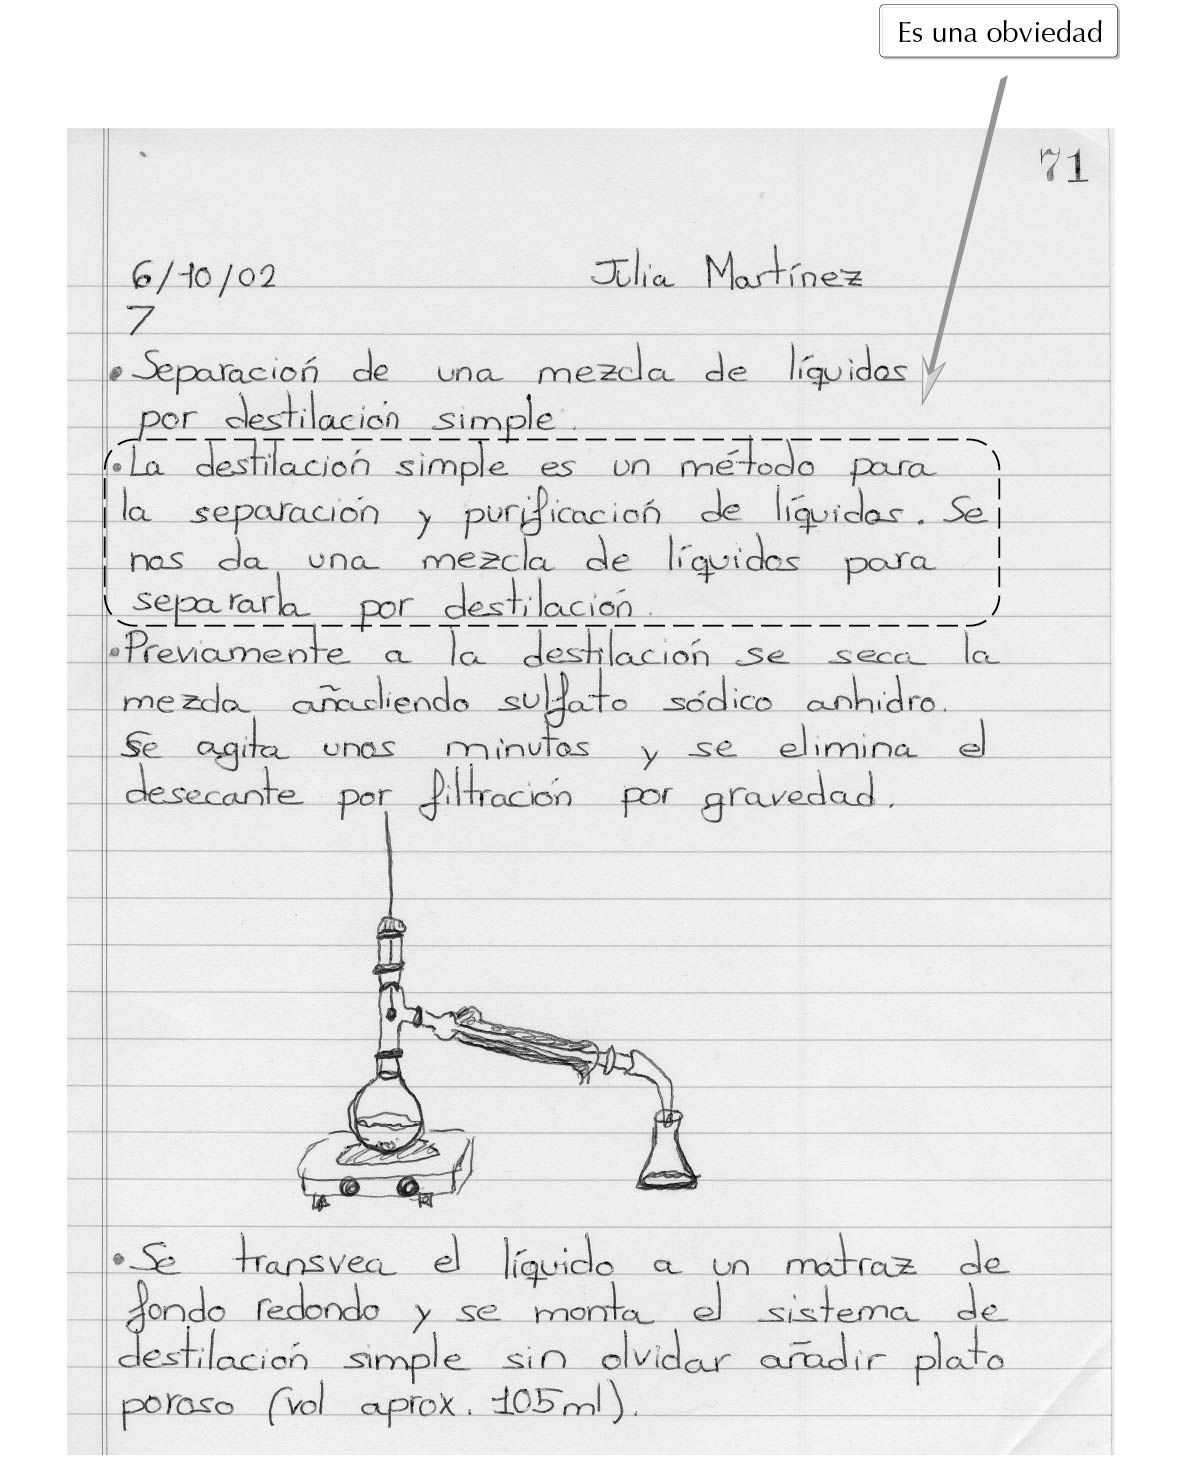 Es una obviedad
71
6/10/02 Julia Martínez
7
• Separación de una mezcla de líquidos
por destilación simple.
• La destilación simple es un método para
la separación y purificación de líquidos. Se
nos da una mezcla de líquidos para
separarla por destilación.
• Previamente a la destilación se seca la
mezcla añadiendo sulfato sódico anhidro.
Se agita unos minutos y se elimina el
desecante por filtración por gravedad.
• Se transvea el líquido a un matraz de
fondo redondo y se monta el sistema de
destilación simple sin olvidar añadir plato
poroso (vol aprox. 105ml).